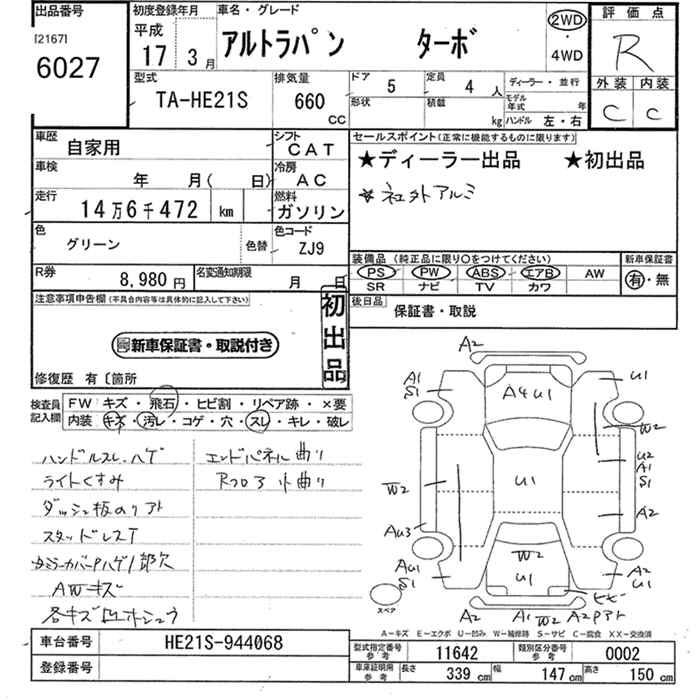 出品番号
[2167]
6027
初度登録年月
平成
17 3月
車名・グレード
アルトラパン ターボ
2WD
・
4WD
評価点
R
外装 内装
C C
型式
TA-HE21S
排気量
660 CC
ドア 5
定員 4人
形状
積載 kg
ディーラー・並行
モデル年式 年
ハンドル 左・右
車歴
自家用
シフト
CAT
車検
年 月( 日)
冷房
AC
走行
14万6千472 km
燃料
ガソリン
色
グリーン
色替
色コード
ZJ9
R券
8,980円
名変通知期限
月 日
セールスポイント(正常に機能するものに限ります)
★ディーラー出品 ★初出品
社外アルミ
装備品(純正品に限り○をつけてください)
PS PW ABS エアB AW
SR ナビ TV カワ
新車保証書
有・無
後日品
保証書・取説
注意事項申告欄(不具合内容等は具体的に記入して下さい)
新車保証書・取説付き
初出品
修復歴 有〔箇所
検査員記入欄
FW キズ・飛石・ヒビ割・リペア跡・×要
内装 キズ・汚レ・コゲ・穴・スレ・キレ・破レ
ハンドルスレ、ハゲ
ライトくすみ
ダッシュ板のリアト
スタッドレスT
AWキズ
各キズ凹ホシュウ
エンドパネル曲り
Rフロア小曲り
A2
A1
S1
A4U1
U1
W2
U2
A1
S1
W2
U1
A2
Au3
W2
AU1
S1
A2
U1
ヒビ
スペア
A2 A1 W2 A2Pアト
A-キズ E-エクボ U-凹み W-補修跡 S-サビ C-腐食 XX-交換済
車台番号
HE21S-944068
登録番号
型式指定番号 参考
11642
類別区分番号 参考
0002
車庫証明用 参考
長さ 339 cm
幅 147 cm
高さ 150 cm